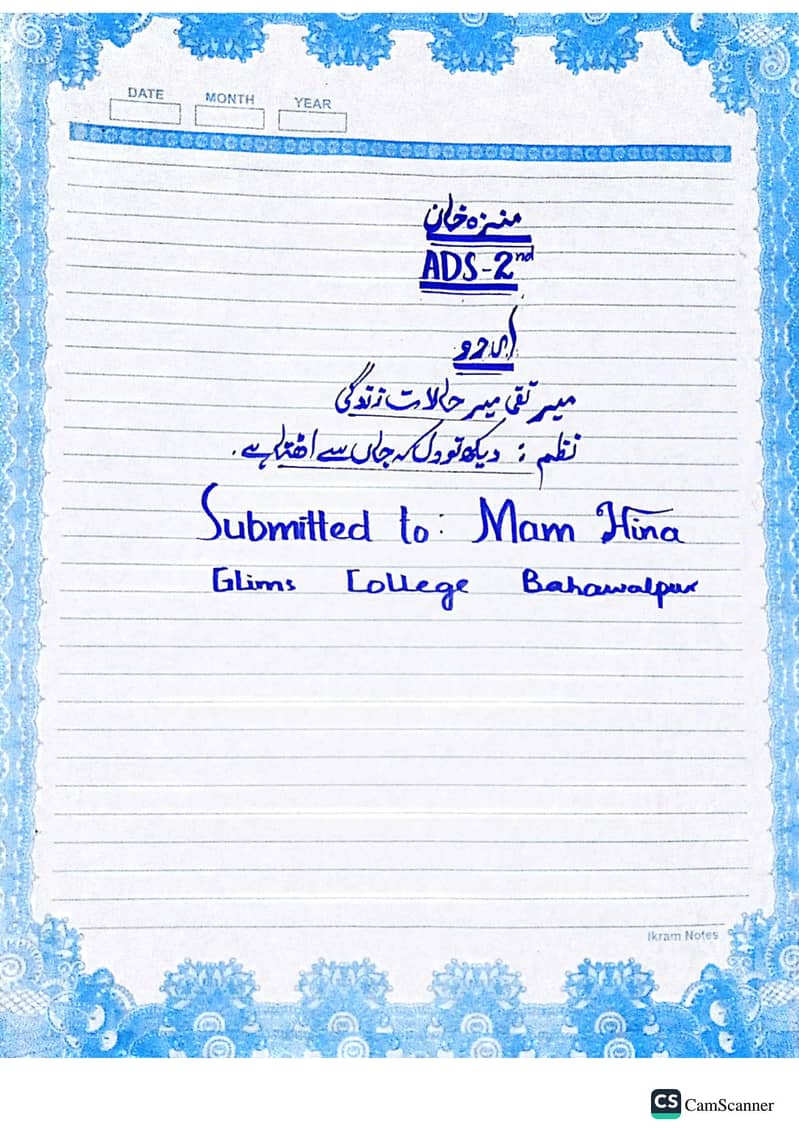 DATE MONTH YEAR
منزہ خان
ADS-2nd
اردو
میر تقی میر حالات زندگی
نظم : دیکھ تو دل کہ جاں سے اٹھتا ہے۔
Submitted to: Mam Hina
Glims College Bahawalpur
Ikram Notes
CS CamScanner